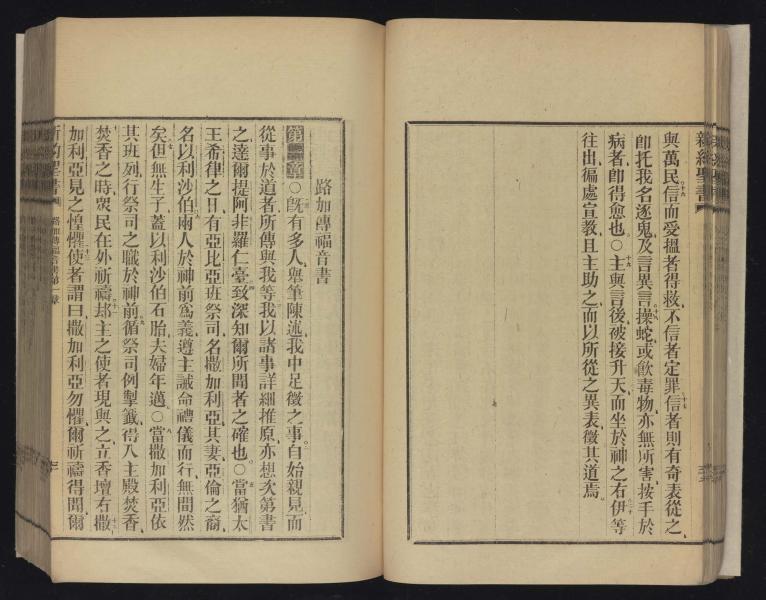 新約聖書
與萬民信而愛搵者得救不信者定罪信者則有奇表從之
卽托我名逐鬼及言異言操蛇或飮毒物亦無所害按手於
病者卽得愈也○主與言後被接升天而坐於神之右伊等
往出徧處宣教且主助之而以所從之異表徵其道焉
路加傳福音書
第一章○旣有多人舉筆陳述我中足徵之事自始親見而
從事於道者所傳與我等我以諸事詳細推原亦想次第書
之達爾提阿非羅仁臺致深知爾所聞者之確也○當猶太
王希律之日有亞比亞班祭司名撒加利亞其妻亞倫之裔
名以利沙伯兩人於神前爲義遵主誡命禮儀而行無間然
矣但無生子蓋以利沙伯石胎夫婦年邁○當撒加利亞依
其班列行祭司之職於神前循祭司例掣籤得入主殿焚香
焚香之時衆民在外祈禱却主之使者現與之立香壇右撒
加利亞見之惶懼使者謂曰撒加利亞勿懼爾祈禱得聞爾
路加傳福音書第一章